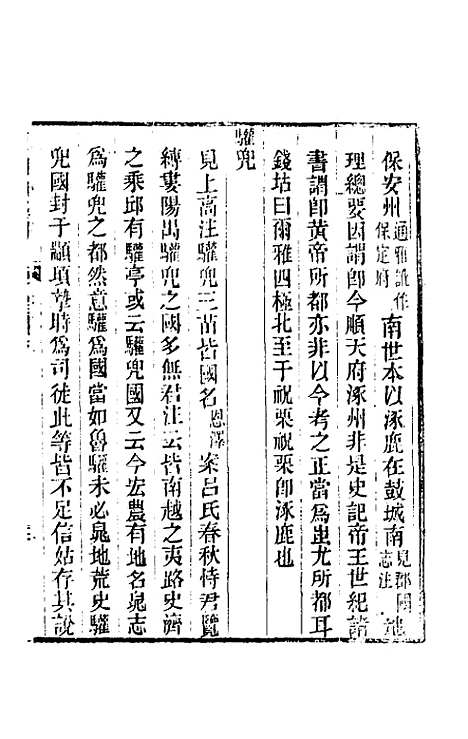 保安州通雅訛作保定府南世本以涿鹿在鼓城南見郡國志注地
理總要因謂卽今順天府涿州非是史記帝王世紀諸
書謂卽黃帝所都亦非以今考之正當爲蚩尤所都耳
錢坫曰爾雅四極北至于祝栗祝栗卽涿鹿也
驩兜
見上高注驩兜三苗皆國名恩澤案呂氏春秋恃君覽
縛婁陽禺驩兜之國多無君注云皆南越之夷路史濟
之乘邱有驩亭或云驩兜國又云今宏農有地名㒫志
爲驩兜之都然意驩爲國當如魯驩未必㒫地荒史驩
兜國封于顓頊辛時爲司徒此等皆不足信姑存其說